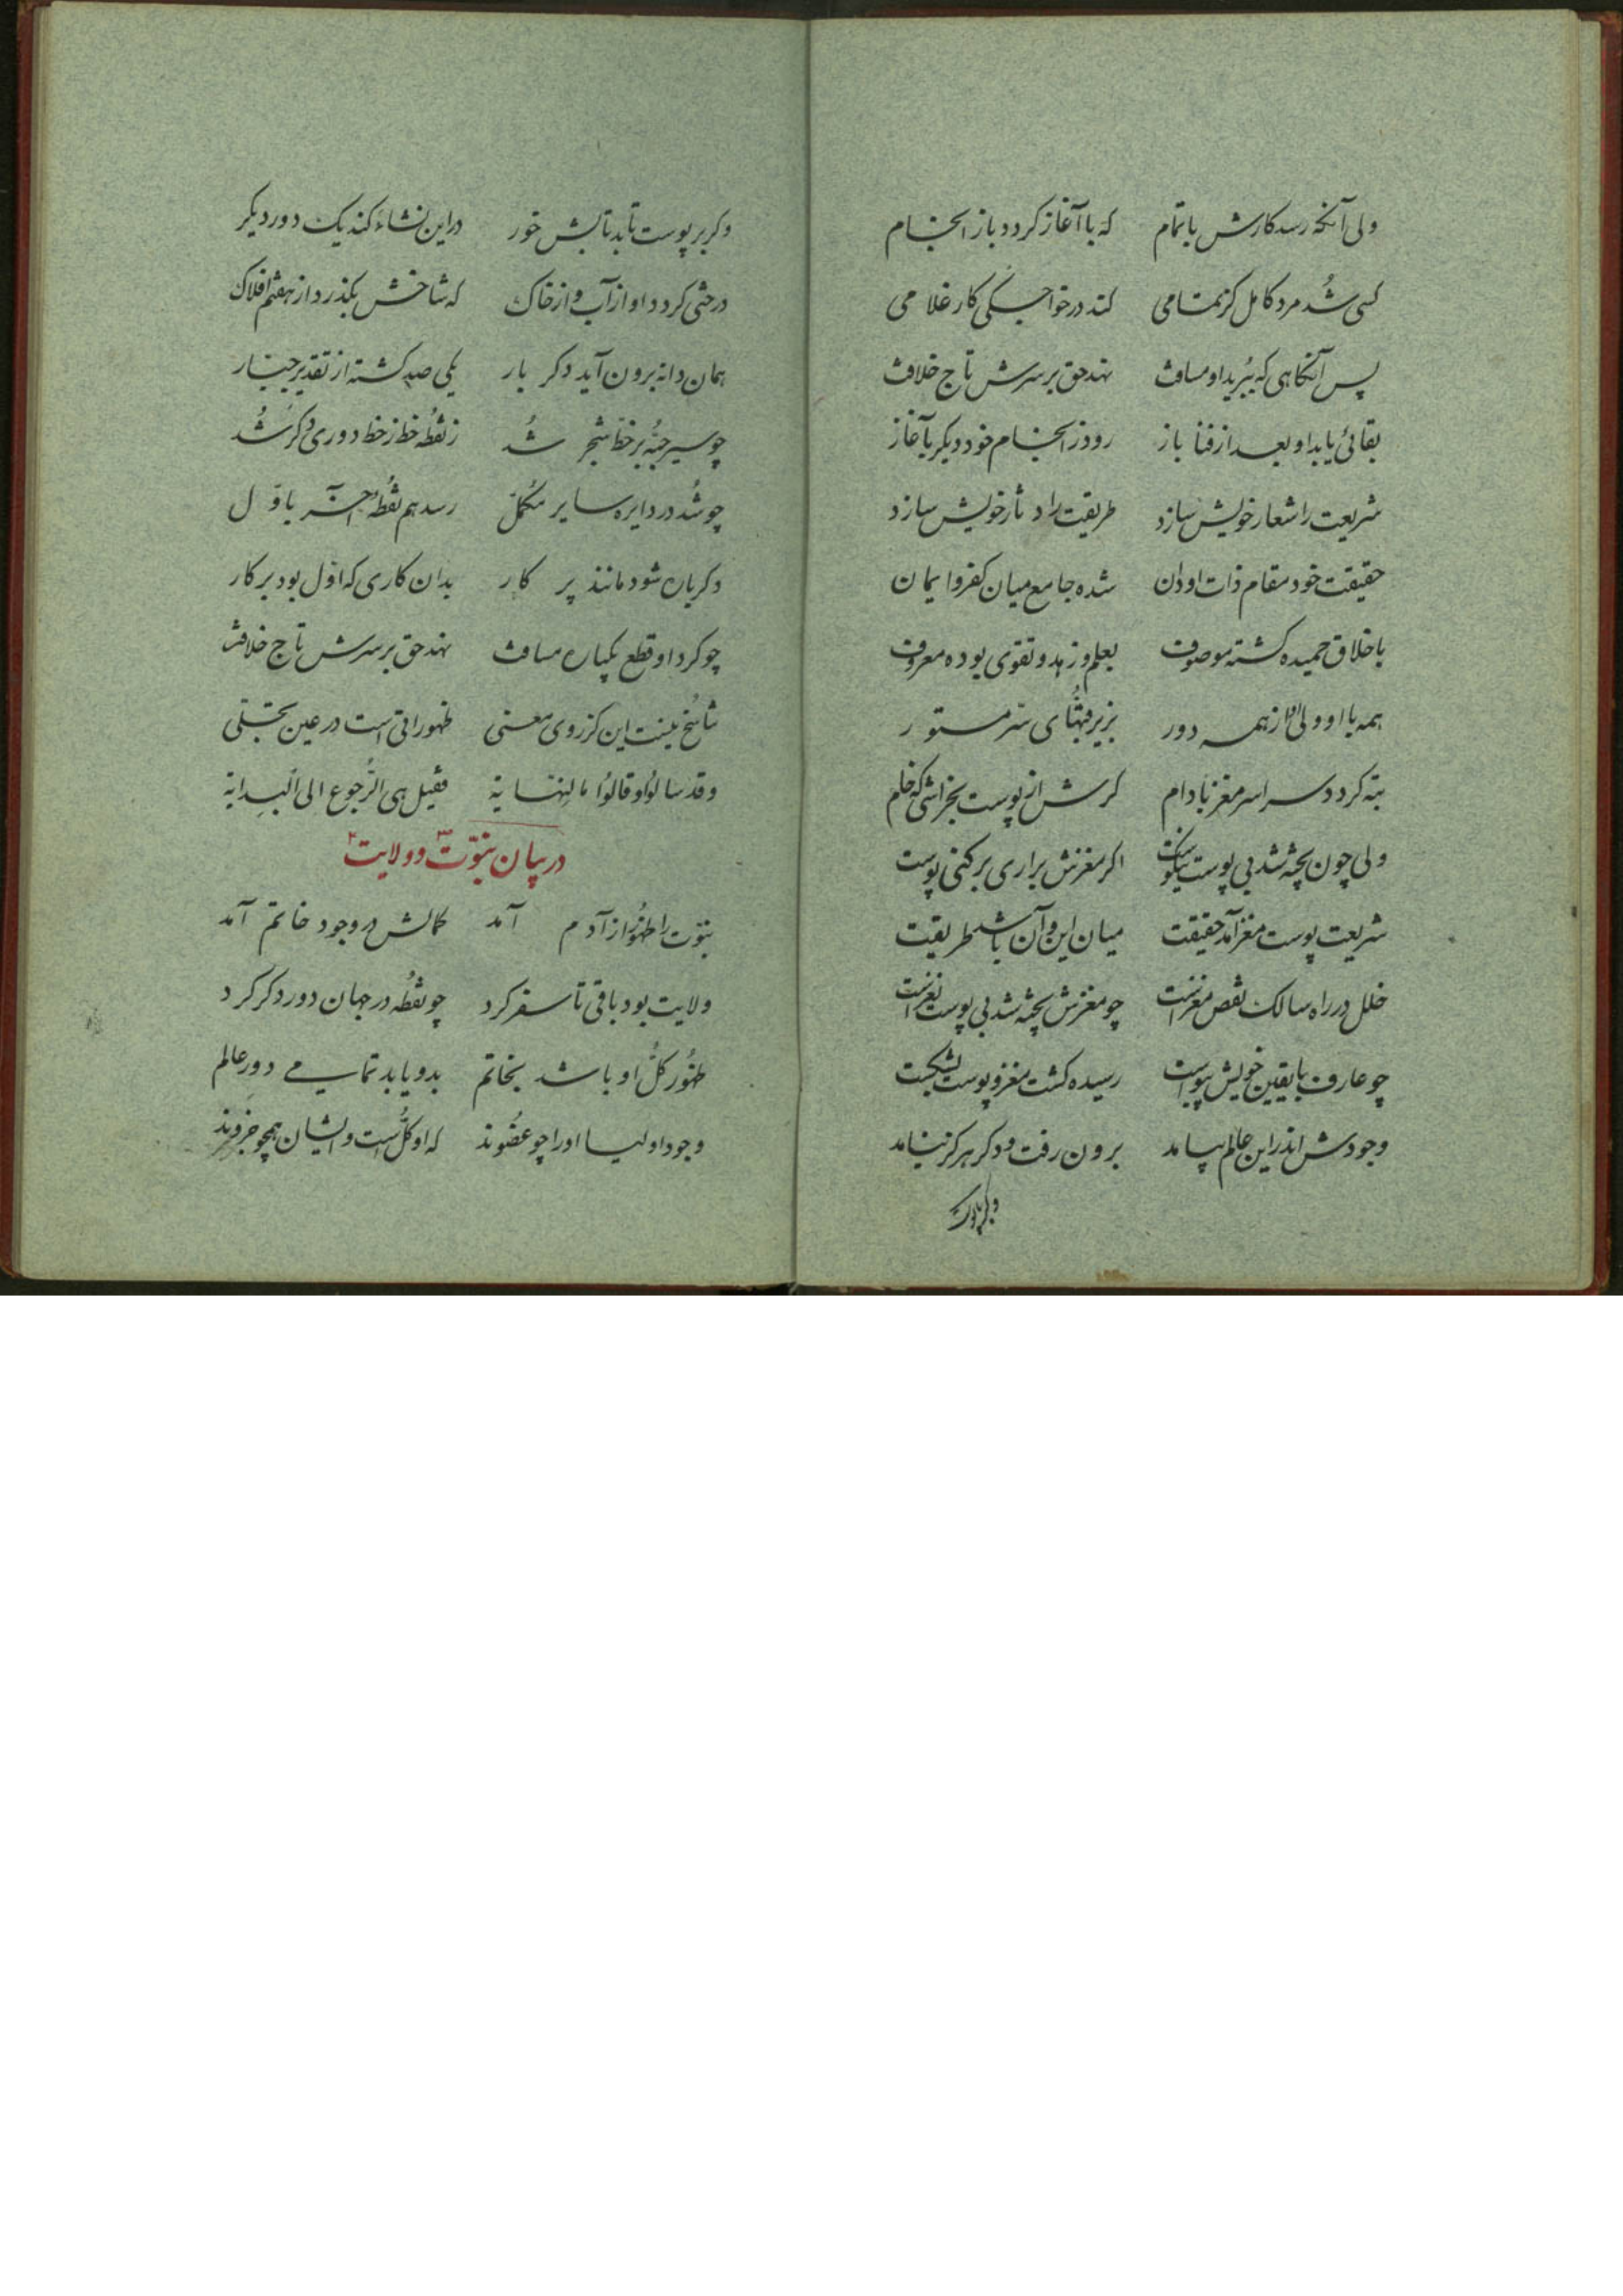 ولی آنگه رسد کارش باتمام که با آغاز کردد باز انجام
کسی شُد مرد کامل کز تمامی کند در خواجگی کار غلامی
پس آنگاهی که ببُرید او مسافت نهد حق بر سرش تاج خلافت
بقائی یابد او بعد از فنا باز رود ز انجام خود دیگر بآغاز
شریعت را شعار خویش سازد طریقت را دثار خویش سازد
حقیقت خود مقام ذات او دان شده جامع میان کفر و ایمان
باخلاق حمیده کشته موصوف بعلم و زهد و تقوی بوده معروف
همه با او ولی او از همه دور بزیر قبّهای ستر مستور
تبه کردد سراسر مغز بادام کرش از پوست بخراشی که خام
ولی چون پخته شد بی پوست نیکوست اکر مغزش براری برکنی پوست
شریعت پوست مغز آمد حقیقت میان این و آن باشد طریقت
خلل در راه سالک نقص مغز است چو مغزش پخته شد بی پوست نغز است
چو عارف با یقین خویش پیوست رسیده کشت مغز و پوست بشکست
وجودش اندر این عالم نپاید برون رفت و دکر هرکز نیامد
وکر بر پوست
وکر بر پوست تابد تابش خور در این نشاء کند یک دور دیکر
درختی کردد او از آب و از خاک که شاخش بکذرد از هفتم افلاک
همان دانه برون آید دکر بار یکی صد کشته از تقدیر جبار
چو سیر حبّه بر خط شجر شُد ز نقطه خط ز خط دوری دکر شُد
چو شُد در دایره سایر مُکمّل رسد هم نقطهٔ آخر باوّل
دکرباره شود مانند پرکار بدان کاری که اوّل بود بر کار
چو کرد او قطع یکباره مسافت نهد حق بر سرش تاج خلافت
تناسُخ نیست این کز روی معنی ظهوراتی است در عین تجلّی
وقد سالوُا و قالوُا ما النهایة فقیل هی الرُّجوع الی البدایة
در بیان نبوّت و ولایت
نبوّت را ظهوُر از آدم آمد کمالش در وجود خاتم آمد
ولایت بود باقی تا سفر کرد چو نقطُه در جهان دور دکر کرد
ظهوُر کلُّ او باشد بخاتم بدو یابد تمامی دورِ عالم
وجود اولیا او را چو عضُوند که او کلُّ است و ایشان همچو جزوند